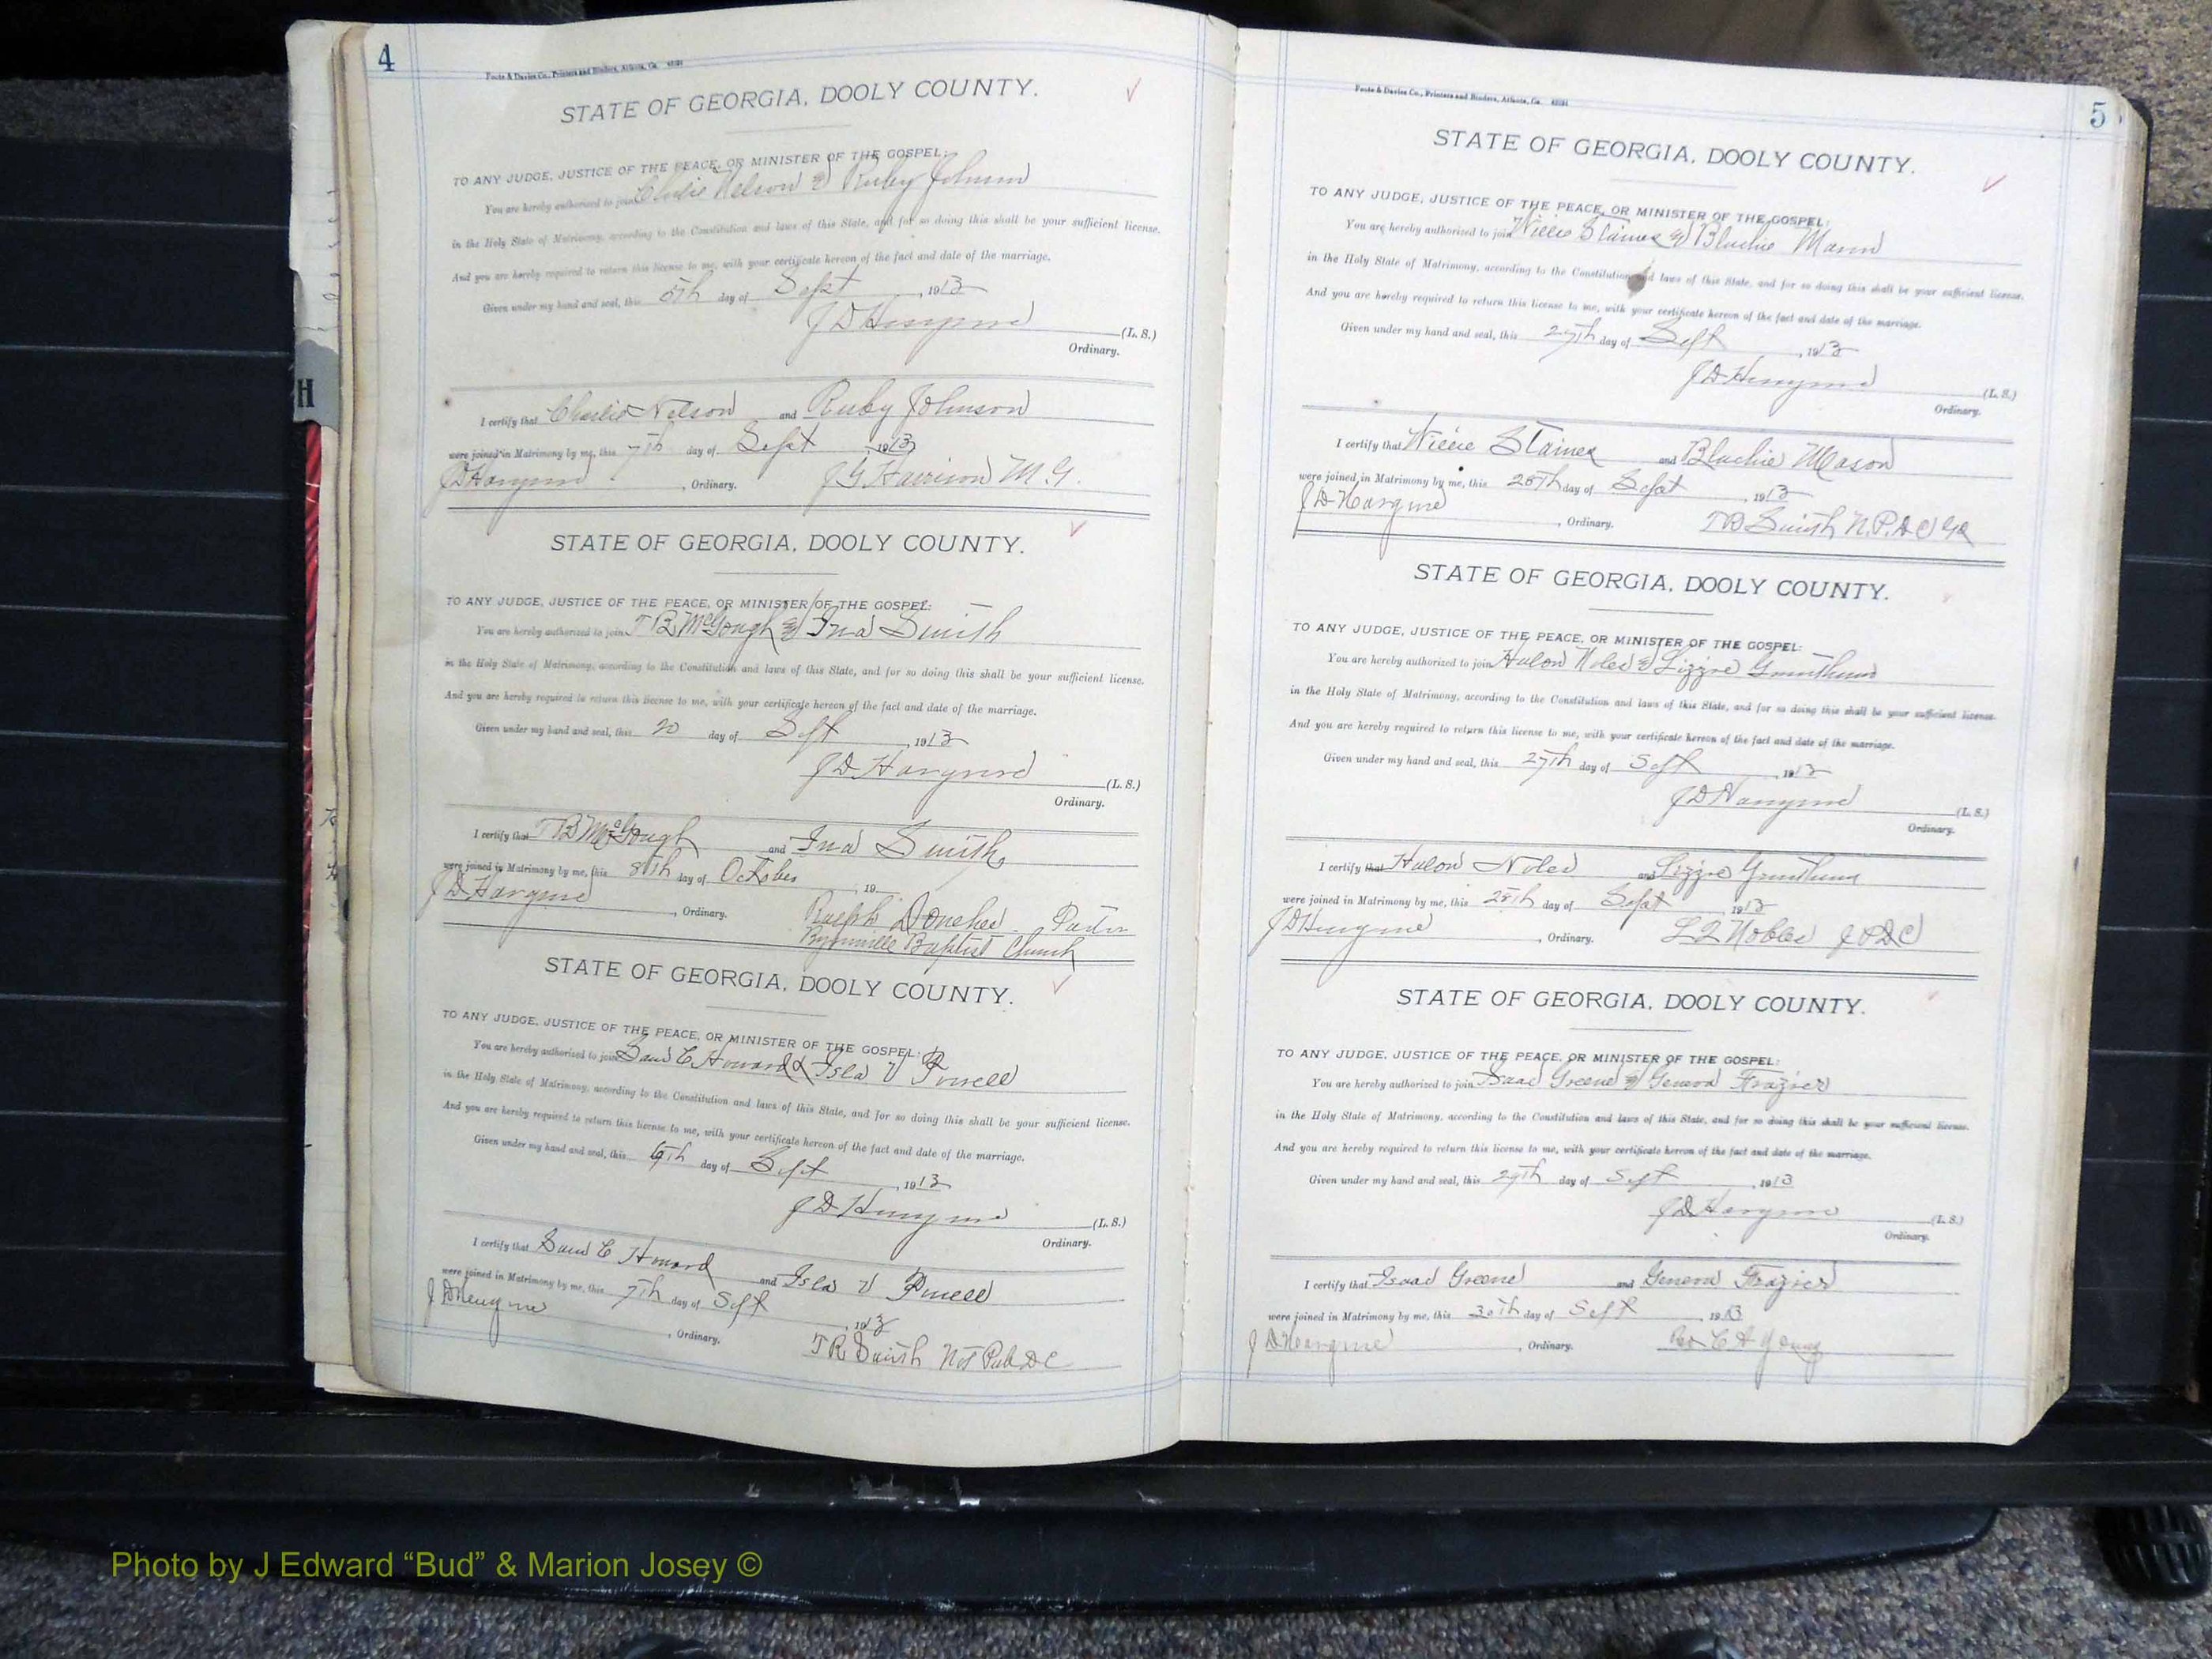 4
Foote & Davies Co., Printers and Binders, Atlanta, Ga.
STATE OF GEORGIA, DOOLY COUNTY.
TO ANY JUDGE, JUSTICE OF THE PEACE, OR MINISTER OF THE GOSPEL:
You are hereby authorized to join Charlie Nelson & Ruby Johnson
in the Holy State of Matrimony, according to the Constitution and laws of this State, and for so doing this shall be your sufficient license.
And you are hereby required to return this license to me, with your certificate hereon of the fact and date of the marriage.
Given under my hand and seal, this 5th day of Sept, 1913
J D Hargrove (L. S.)
Ordinary.
I certify that Charlie Nelson and Ruby Johnson
were joined in Matrimony by me, this 7th day of Sept, 1913
J D Hargrove, Ordinary. J G Harrison M. G.
STATE OF GEORGIA, DOOLY COUNTY.
TO ANY JUDGE, JUSTICE OF THE PEACE, OR MINISTER OF THE GOSPEL:
You are hereby authorized to join T B McGough & Ina Smith
in the Holy State of Matrimony, according to the Constitution and laws of this State, and for so doing this shall be your sufficient license.
And you are hereby required to return this license to me, with your certificate hereon of the fact and date of the marriage.
Given under my hand and seal, this 20 day of Sept, 1913
J D Hargrove (L. S.)
Ordinary.
I certify that T B McGough and Ina Smith
were joined in Matrimony by me, this 8th day of October, 19
J D Hargrove, Ordinary. Ralph Donehoo - Pastor
Byromville Baptist Church
STATE OF GEORGIA, DOOLY COUNTY.
TO ANY JUDGE, JUSTICE OF THE PEACE, OR MINISTER OF THE GOSPEL:
You are hereby authorized to join Sam C. Howard & Isla V Powell
in the Holy State of Matrimony, according to the Constitution and laws of this State, and for so doing this shall be your sufficient license.
And you are hereby required to return this license to me, with your certificate hereon of the fact and date of the marriage.
Given under my hand and seal, this 6th day of Sept, 1913
J D Hargrove (L. S.)
Ordinary.
I certify that Sam C Howard and Isla V Powell
were joined in Matrimony by me, this 7th day of Sept, 1913
J D Hargrove, Ordinary. T R Smith Not Pub D C
5
Foote & Davies Co., Printers and Binders, Atlanta, Ga.
STATE OF GEORGIA, DOOLY COUNTY.
TO ANY JUDGE, JUSTICE OF THE PEACE, OR MINISTER OF THE GOSPEL:
You are hereby authorized to join Willie Staines & Blachie Mason
in the Holy State of Matrimony, according to the Constitution and laws of this State, and for so doing this shall be your sufficient license.
And you are hereby required to return this license to me, with your certificate hereon of the fact and date of the marriage.
Given under my hand and seal, this 27th day of Sept, 1913
J D Hargrove (L. S.)
Ordinary.
I certify that Willie Staines and Blachie Mason
were joined in Matrimony by me, this 28th day of Sept, 1913
J D Hargrove, Ordinary. T R Smith N. P. D C Ga
STATE OF GEORGIA, DOOLY COUNTY.
TO ANY JUDGE, JUSTICE OF THE PEACE, OR MINISTER OF THE GOSPEL:
You are hereby authorized to join Hulon Noles & Lizzie
in the Holy State of Matrimony, according to the Constitution and laws of this State, and for so doing this shall be your sufficient license.
And you are hereby required to return this license to me, with your certificate hereon of the fact and date of the marriage.
Given under my hand and seal, this 27th day of Sept, 1913
J D Hargrove (L. S.)
Ordinary.
I certify that Hulon Noles and Lizzie
were joined in Matrimony by me, this 28th day of Sept, 1913
J D Hargrove, Ordinary. Nobles J P D C
STATE OF GEORGIA, DOOLY COUNTY.
TO ANY JUDGE, JUSTICE OF THE PEACE, OR MINISTER OF THE GOSPEL:
You are hereby authorized to join Isaac Greene & Geneva Frazier
in the Holy State of Matrimony, according to the Constitution and laws of this State, and for so doing this shall be your sufficient license.
And you are hereby required to return this license to me, with your certificate hereon of the fact and date of the marriage.
Given under my hand and seal, this 29th day of Sept, 1913
J D Hargrove (L. S.)
Ordinary.
I certify that Isaac Greene and Geneva Frazier
were joined in Matrimony by me, this 30th day of Sept, 1913
J D Hargrove, Ordinary. Rev C A Young
H
Photo by J Edward “Bud” & Marion Josey ©